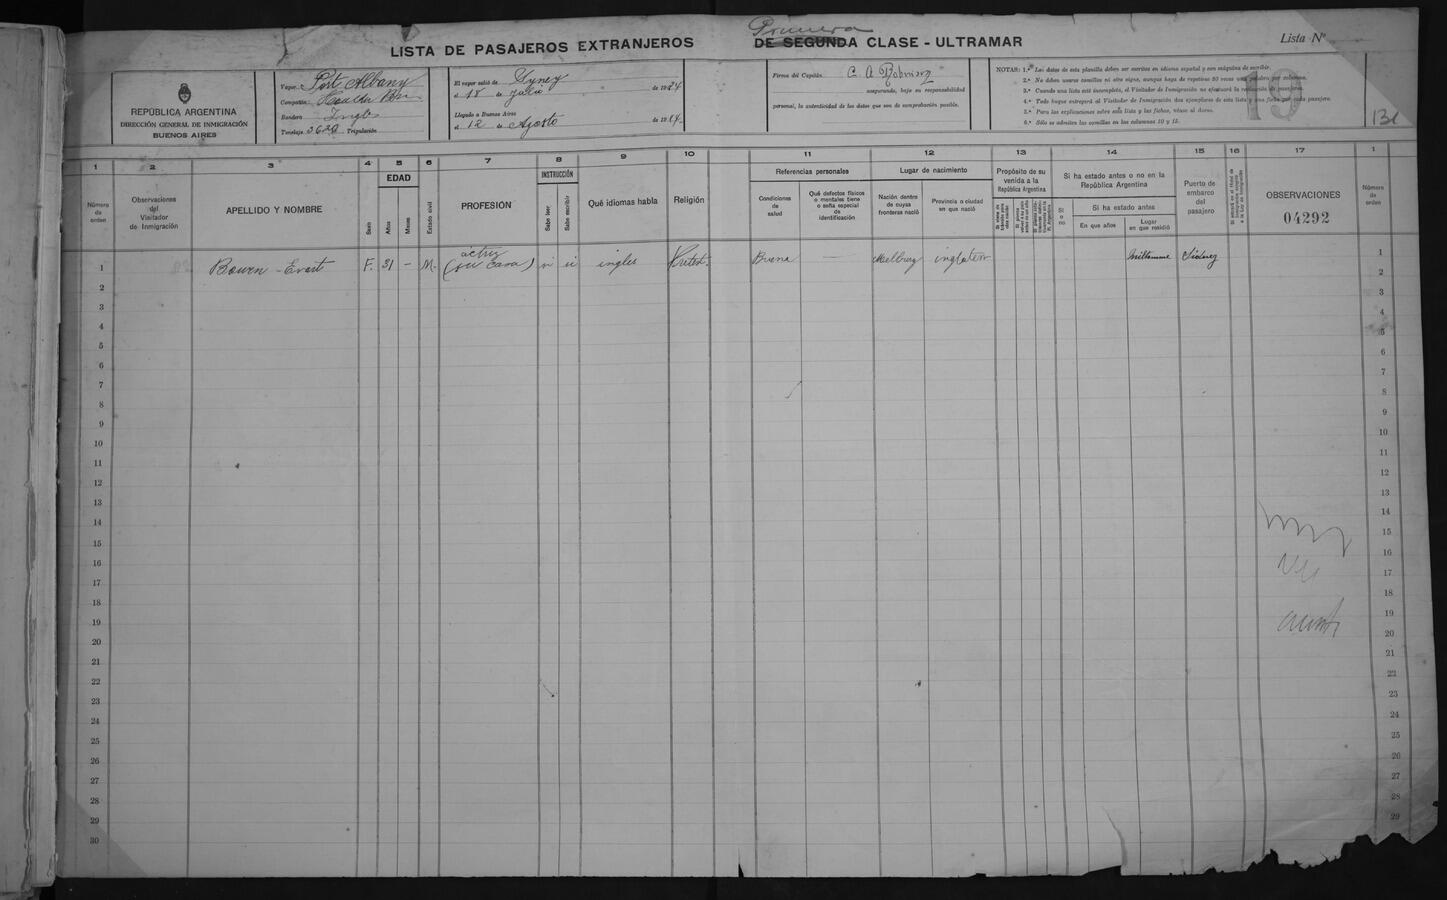 Primera
LISTA DE PASAJEROS EXTRANJEROS DE SEGUNDA CLASE - ULTRAMAR
Lista Nº
REPÚBLICA ARGENTINA
DIRECCIÓN GENERAL DE INMIGRACIÓN
BUENOS AIRES
Vapor Port Albany
Compañía Houlder
Bandera
Tonelaje Tripulación
El vapor salió de Syney
el 18 de Julio de 1924
Llegado a Buenos Aires
el 12 de Agosto de 19
Firma del Capitán C. A.
asegurando, bajo su responsabilidad
personal, la autenticidad de los datos que son de comprobación posible.
NOTAS: 1.ª Los datos de esta planilla deben ser escritos en idioma español y con máquina de escribir.
2.ª No deben usarse comillas ni otro signo, aunque haya de repetirse 50 veces una palabra por columna.
3.ª Cuando una lista esté incompleta, el Visitador de Inmigración no efectuará la recepción de pasajeros.
4.ª Todo buque entregará al Visitador de Inmigración dos ejemplares de esta lista y una ficha por cada pasajero.
5.ª Para las explicaciones sobre esta lista y las fichas, véase al dorso.
6.ª Sólo se admiten las comillas en las columnas 10 y 15.
19
131
1 2 3 4 5 6 7 8 9 10 11 12 13 14 15 16 17 1
Número de orden
Observaciones del Visitador de Inmigración
APELLIDO Y NOMBRE
Sexo
EDAD
Años
Meses
Estado civil
PROFESIÓN
INSTRUCCIÓN
Sabe leer
Sabe escribir
Qué idiomas habla
Religión
Referencias personales
Condiciones de salud
Qué defectos físicos o mentales tiene o seña especial de identificación
Lugar de nacimiento
Nación dentro de cuyas fronteras nació
Provincia o ciudad en que nació
Propósito de su venida a la República Argentina
Si ha estado antes o no en la República Argentina
Si o no
Si ha estado antes
En que años
Lugar en que residió
Puerto de embarco del pasajero
OBSERVACIONES
04292
Número de orden
1 Bowen - Evart F. 31 - M. actriz (su casa) si si ingles Protest. Buena — Melburg inglaterr Sidney 1
2 2
3 3
4 4
5 5
6 6
7 7
8 8
9 9
10 10
11 11
12 12
13 13
14 14
15 15
16 16
17 17
18 18
19 19
20 20
21 21
22 22
23 23
24 24
25 25
26 26
27 27
28 28
29 29
30